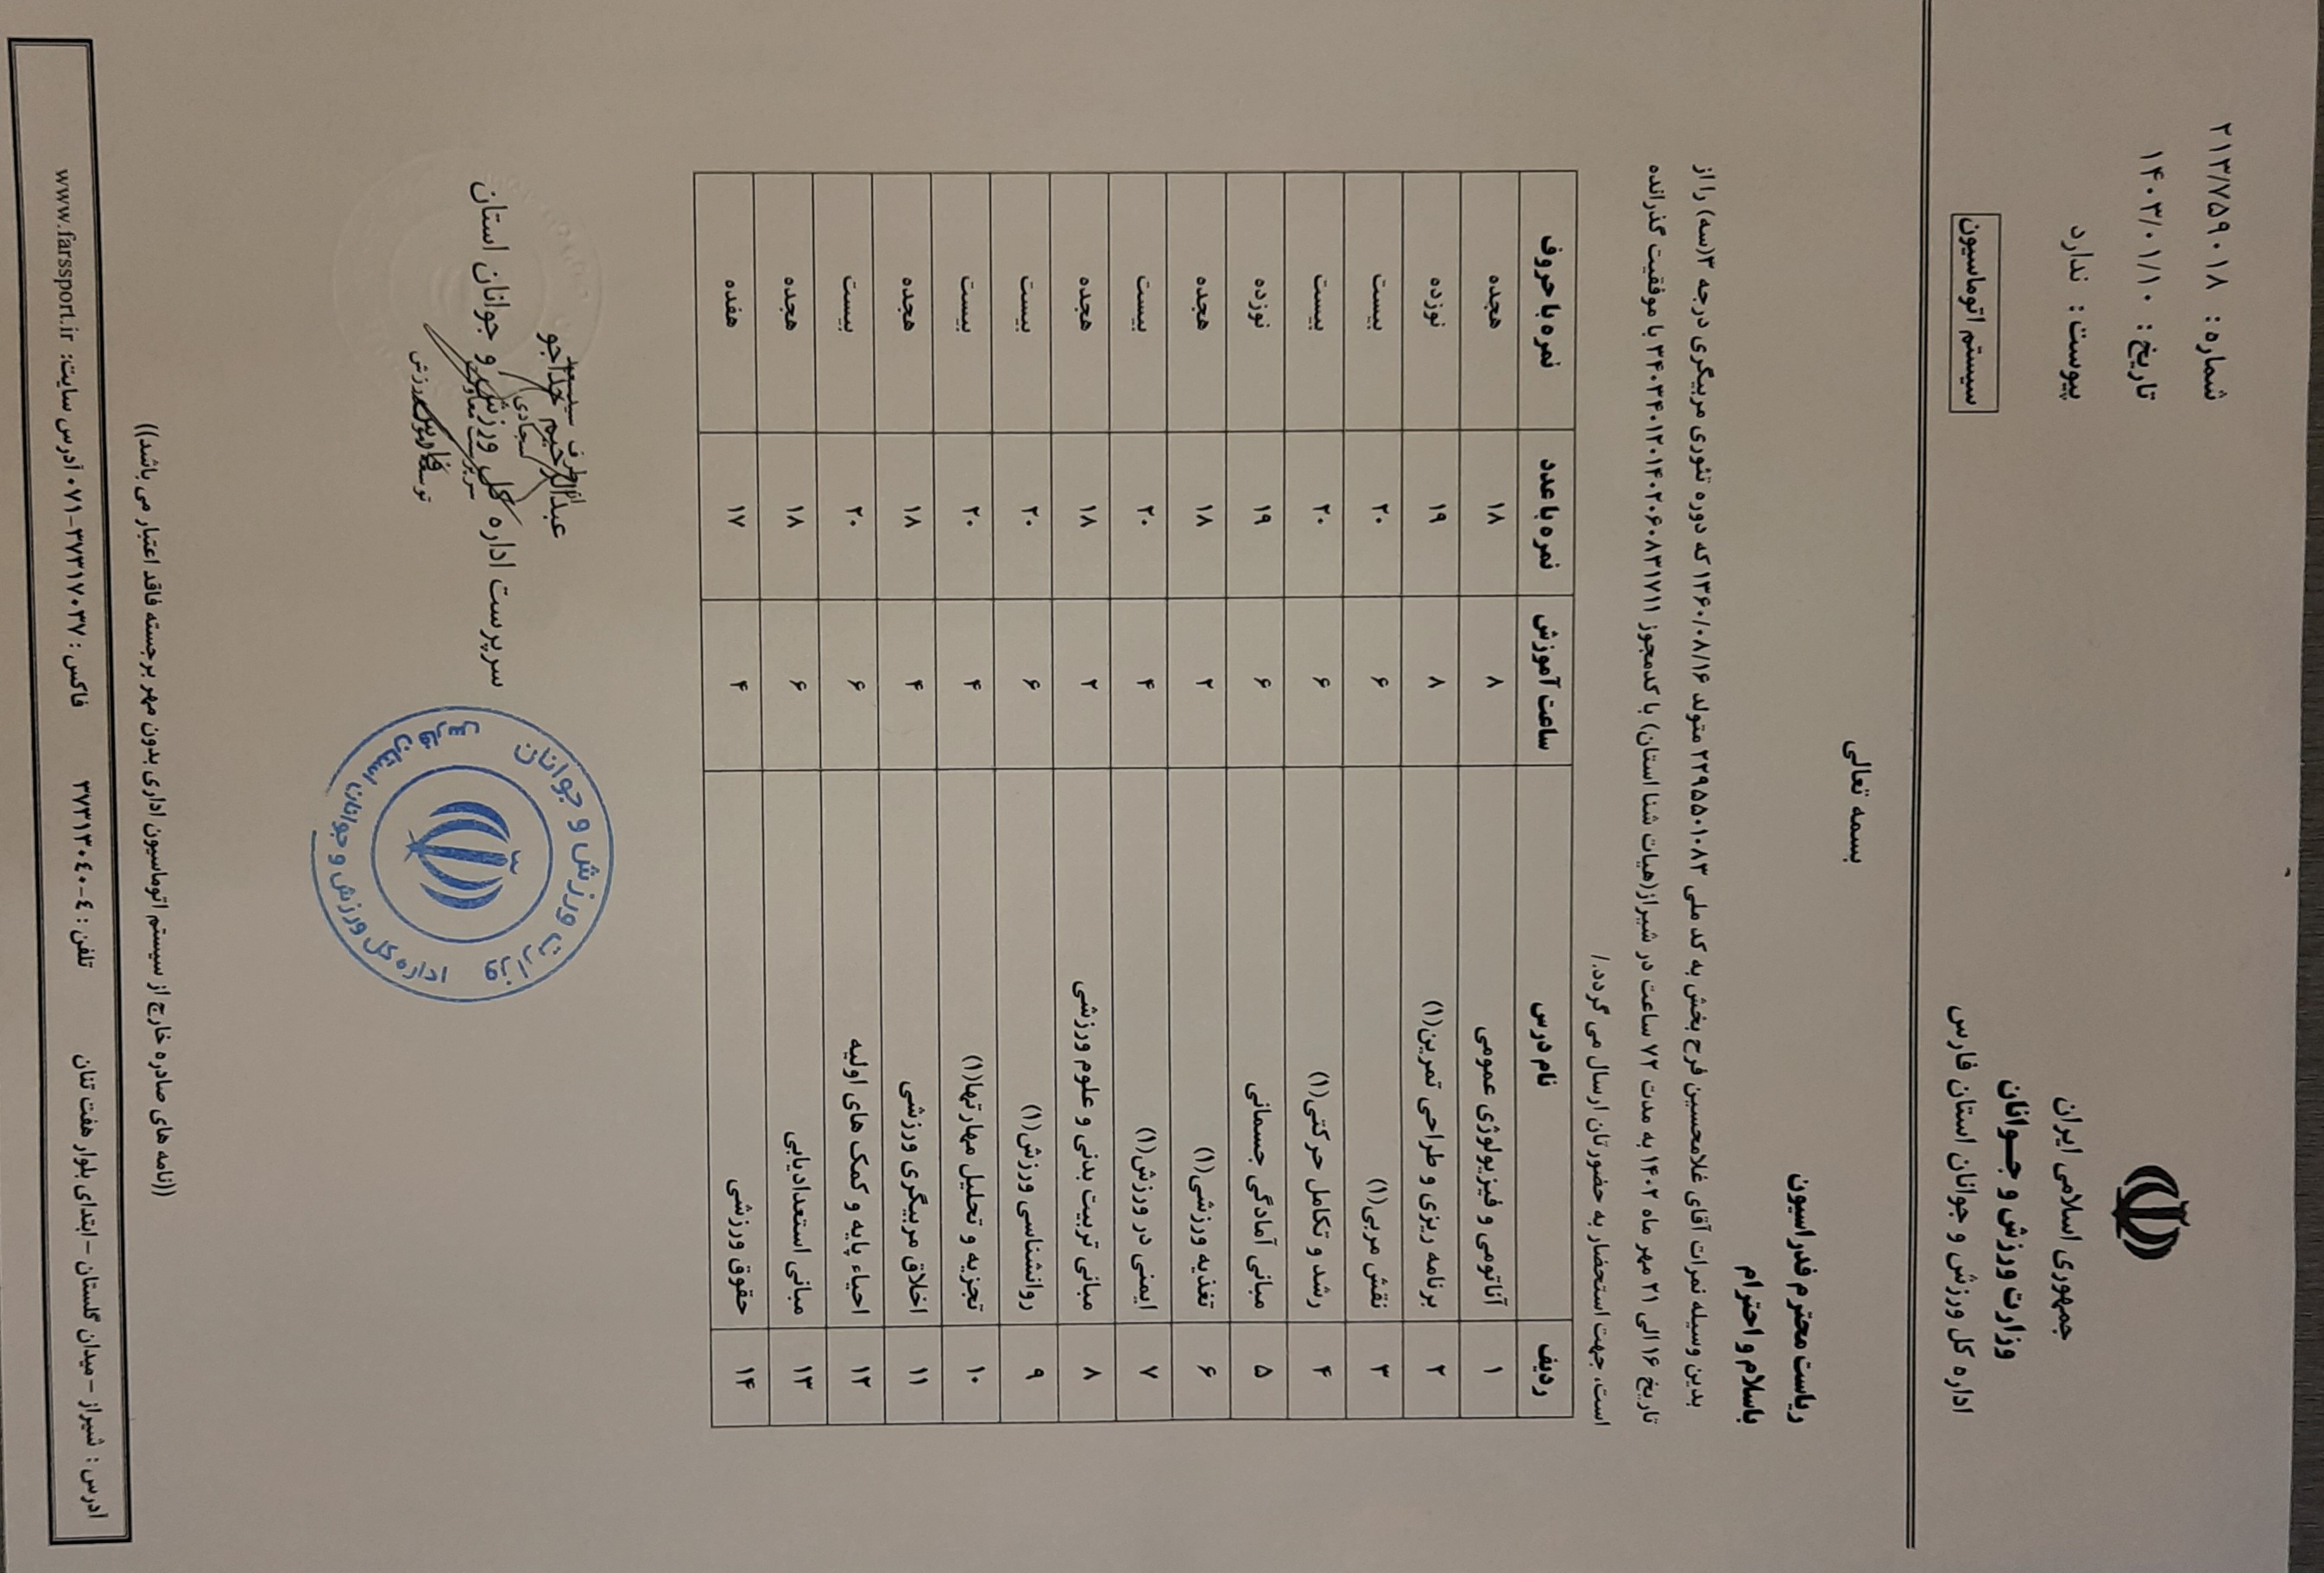 جمهوری اسلامی ایران
وزارت ورزش و جـوانان
اداره کل ورزش و جوانان استان فارس
شماره : ۲۱۳/۷۵۹۰۱۸
تاریخ : ۱۴۰۳/۰۱/۱۰
پیوست : ندارد
سیستم اتوماسیون
بسمه تعالی
ریاست محترم فدراسیون
باسلام و احترام
بدین وسیله نمرات آقای غلامحسین فرح بخش به کد ملی ۲۲۹۵۵۰۱۰۸۳ متولد ۱۳۶۰/۰۸/۱۶ که دوره تئوری مربیگری درجه ۳(سه) را از
تاریخ ۱۶ الی ۲۱ مهر ماه ۱۴۰۲ به مدت ۷۲ ساعت در شیراز(هیات شنا استان) با کدمجوز ۳۴۰۳۴۰۱۲۰۱۴۰۲۰۶۰۸۳۱۷۱۱ با موفقیت گذرانده
است، جهت استحضار به حضورتان ارسال می گردد./
ردیف نام درس ساعت آموزش نمره با عدد نمره با حروف
۱ آناتومی و فیزیولوژی عمومی ۸ ۱۸ هجده
۲ برنامه ریزی و طراحی تمرین(۱) ۸ ۱۹ نوزده
۳ نقش مربی(۱) ۶ ۲۰ بیست
۴ رشد و تکامل حرکتی(۱) ۶ ۲۰ بیست
۵ مبانی آمادگی جسمانی ۶ ۱۹ نوزده
۶ تغذیه ورزشی(۱) ۲ ۱۸ هجده
۷ ایمنی در ورزش(۱) ۴ ۲۰ بیست
۸ مبانی تربیت بدنی و علوم ورزشی ۲ ۱۸ هجده
۹ روانشناسی ورزش(۱) ۶ ۲۰ بیست
۱۰ تجزیه و تحلیل مهارتها(۱) ۴ ۲۰ بیست
۱۱ اخلاق مربیگری ورزشی ۴ ۱۸ هجده
۱۲ احیاء پایه و کمک های اولیه ۶ ۲۰ بیست
۱۳ مبانی استعدادیابی ۶ ۱۸ هجده
۱۴ حقوق ورزشی ۴ ۱۷ هفده
از طرف سید سعید سجادی
عبدالرحیم خداجو
سرپرست اداره کل ورزش و جوانان استان
سرپرست معاونت
توسعه ورزش
فارس
وزارت ورزش و جوانان
اداره کل ورزش و جوانان استان فارس
((نامه های صادره خارج از سیستم اتوماسیون اداری بدون مهر برجسته فاقد اعتبار می باشد))
ادرس : شیراز – میدان گلستان – ابتدای بلوار هفت تنان تلفن : ٤-۳۷۳۱۳۰٤۰ فاکس : ۳۷۳۱۷۰۳۷-۰۷۱ آدرس سایت: www.farssport.ir